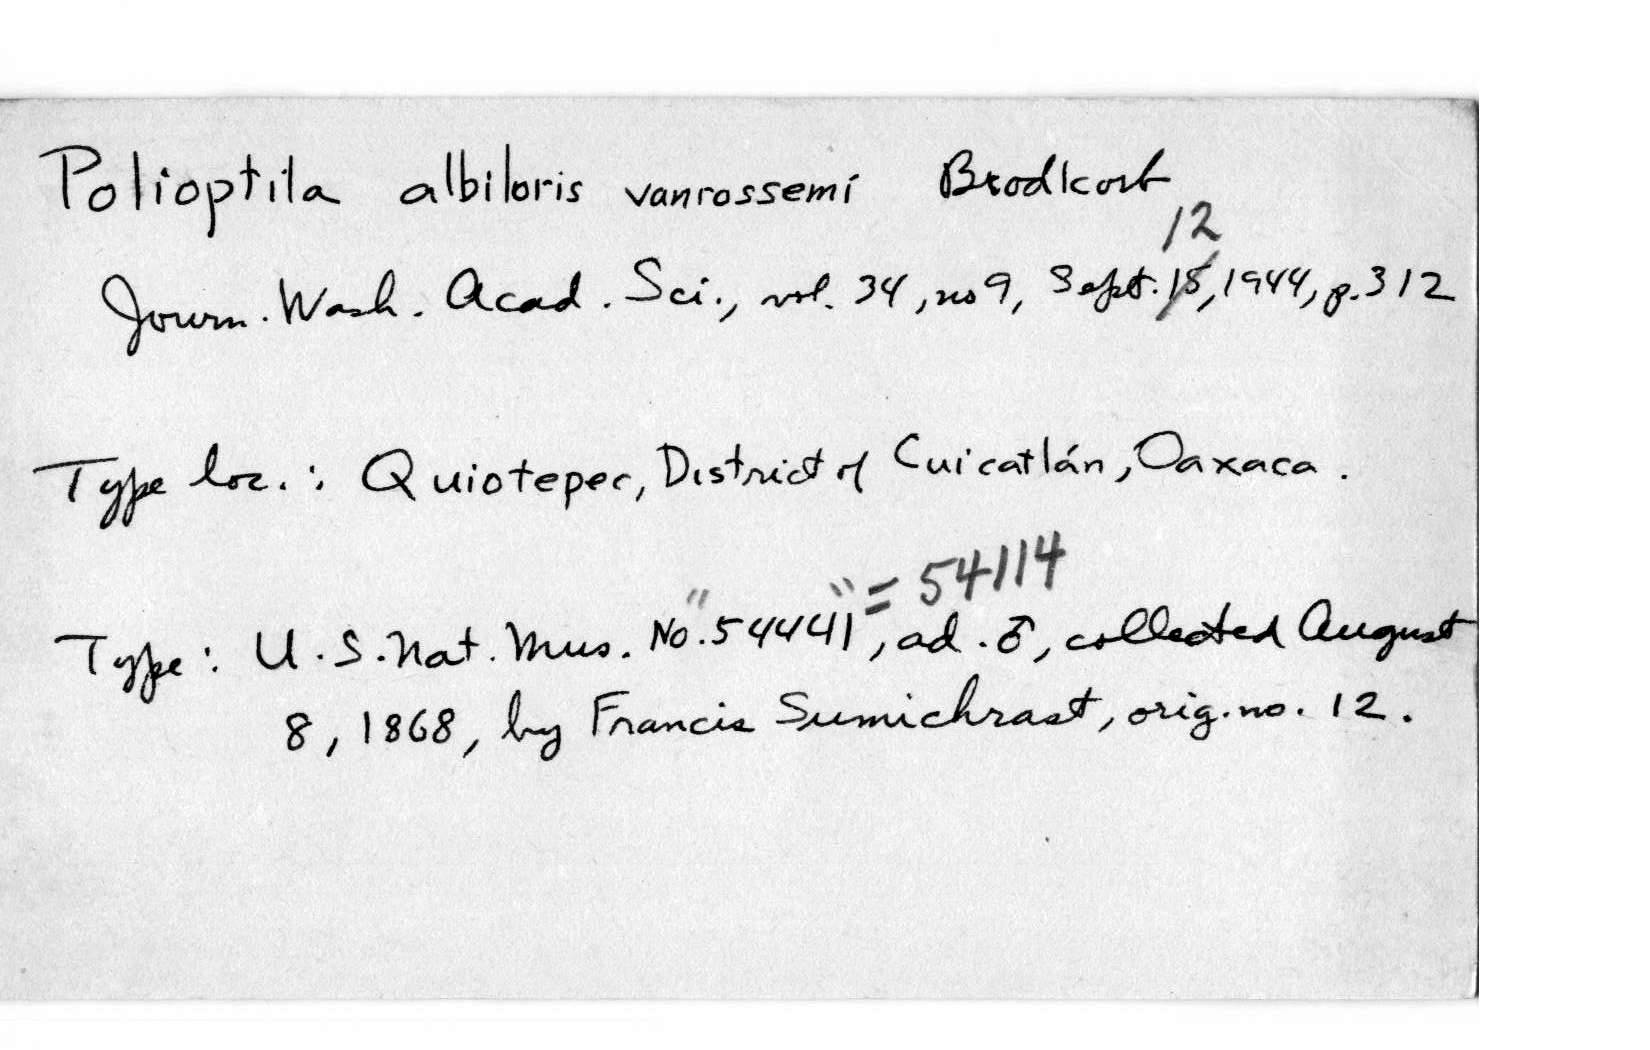 Polioptila albiloris vanrossemi Brodkorb
12
Journ. Wash. Acad. Sci., vol. 34, no 9, Sept. 15, 1944, p. 312
Type loc.: Quiotepec, District of Cuicatlán, Oaxaca.
= 54114
Type: U.S. Nat. Mus. No. "54441", ad. ♂, collected August
8, 1868, by Francis Sumichrast, orig. no. 12.